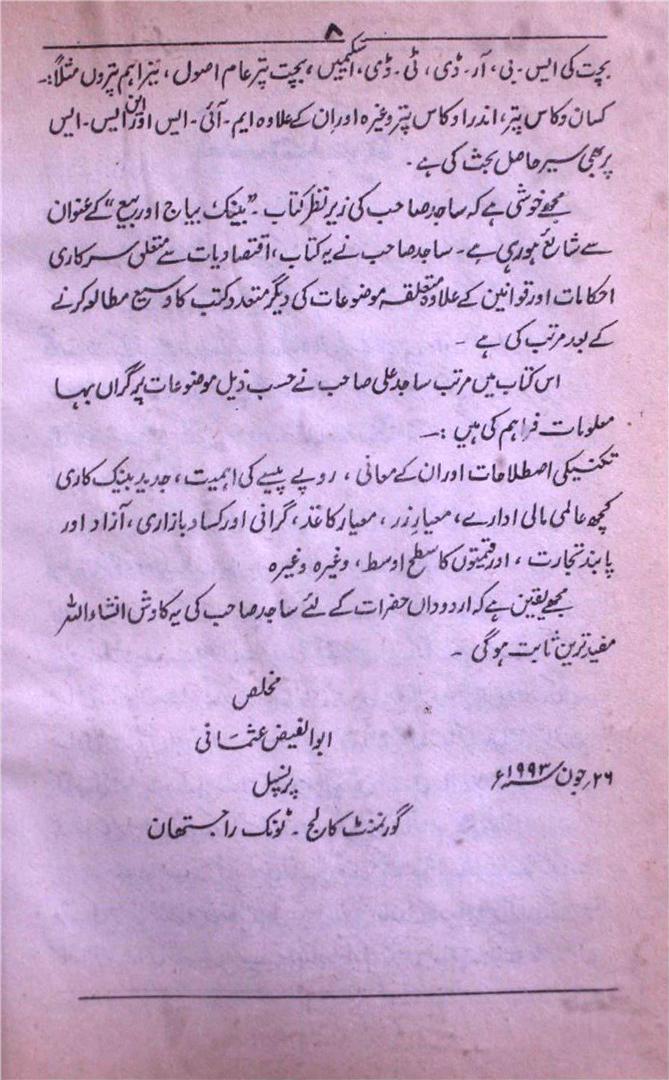 ۸
بچت کی ایس۔بی، آر۔ڈی، ٹی۔ڈی، اسکیمیں، بچت پتر عام اصول، نیز اہم پتروں مثلاً:۔
کسان وکاس پتر، اندرا وکاس پتر وغیرہ اور ان کے علاوہ ایم۔آئی۔ایس اور این ایس۔ایس
پر بھی سیر حاصل بحث کی ہے۔
مجھے خوشی ہے کہ ساجد صاحب کی زیر نظر کتاب۔ "بینک بیاج اور بیع" کے عنوان
سے شائع ہو رہی ہے۔ ساجد صاحب نے یہ کتاب، اقتصادیات سے متعلق سرکاری
احکامات اور قوانین کے علاوہ متعلقہ موضوعات کی دیگر متعدد کتب کا وسیع مطالعہ کرنے
کے بعد مرتب کی ہے۔
اس کتاب میں مرتب ساجد علی صاحب نے حسب ذیل موضوعات پر گراں بہا
معلومات فراہم کی ہیں:۔
تکنیکی اصطلاحات اور ان کے معانی، روپے پیسے کی اہمیت، جدید بینک کاری
کچھ عالمی مالی ادارے، معیار زر، معیار کاغذ، گرانی اور کساد بازاری، آزاد اور
پابند تجارت، اور قیمتوں کا سطح اوسط، وغیرہ وغیرہ
مجھے یقین ہے کہ اردو داں حضرات کے لئے ساجد صاحب کی یہ کاوش انشاء اللہ
مفید ترین ثابت ہوگی۔
مخلص
ابوالفیض عثمانی
۲۶؍جون ۱۹۹۳ء
پرنسپل
گورنمنٹ کالج۔ ٹونک راجستھان